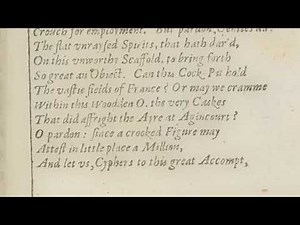 Crouch for employment. But pardon, Gentles all:
The flat unraysed Spirits, that hath dar'd,
On this unworthy Scaffold, to bring forth
So great an Object. Can this Cock-Pit hold
The vastie fields of France? Or may we cramme
Within this Woodden O. the very Caskes
That did affright the Ayre at Agincourt?
O pardon: since a crooked Figure may
Attest in little place a Million,
And let vs, Cyphers to this great Accompt,